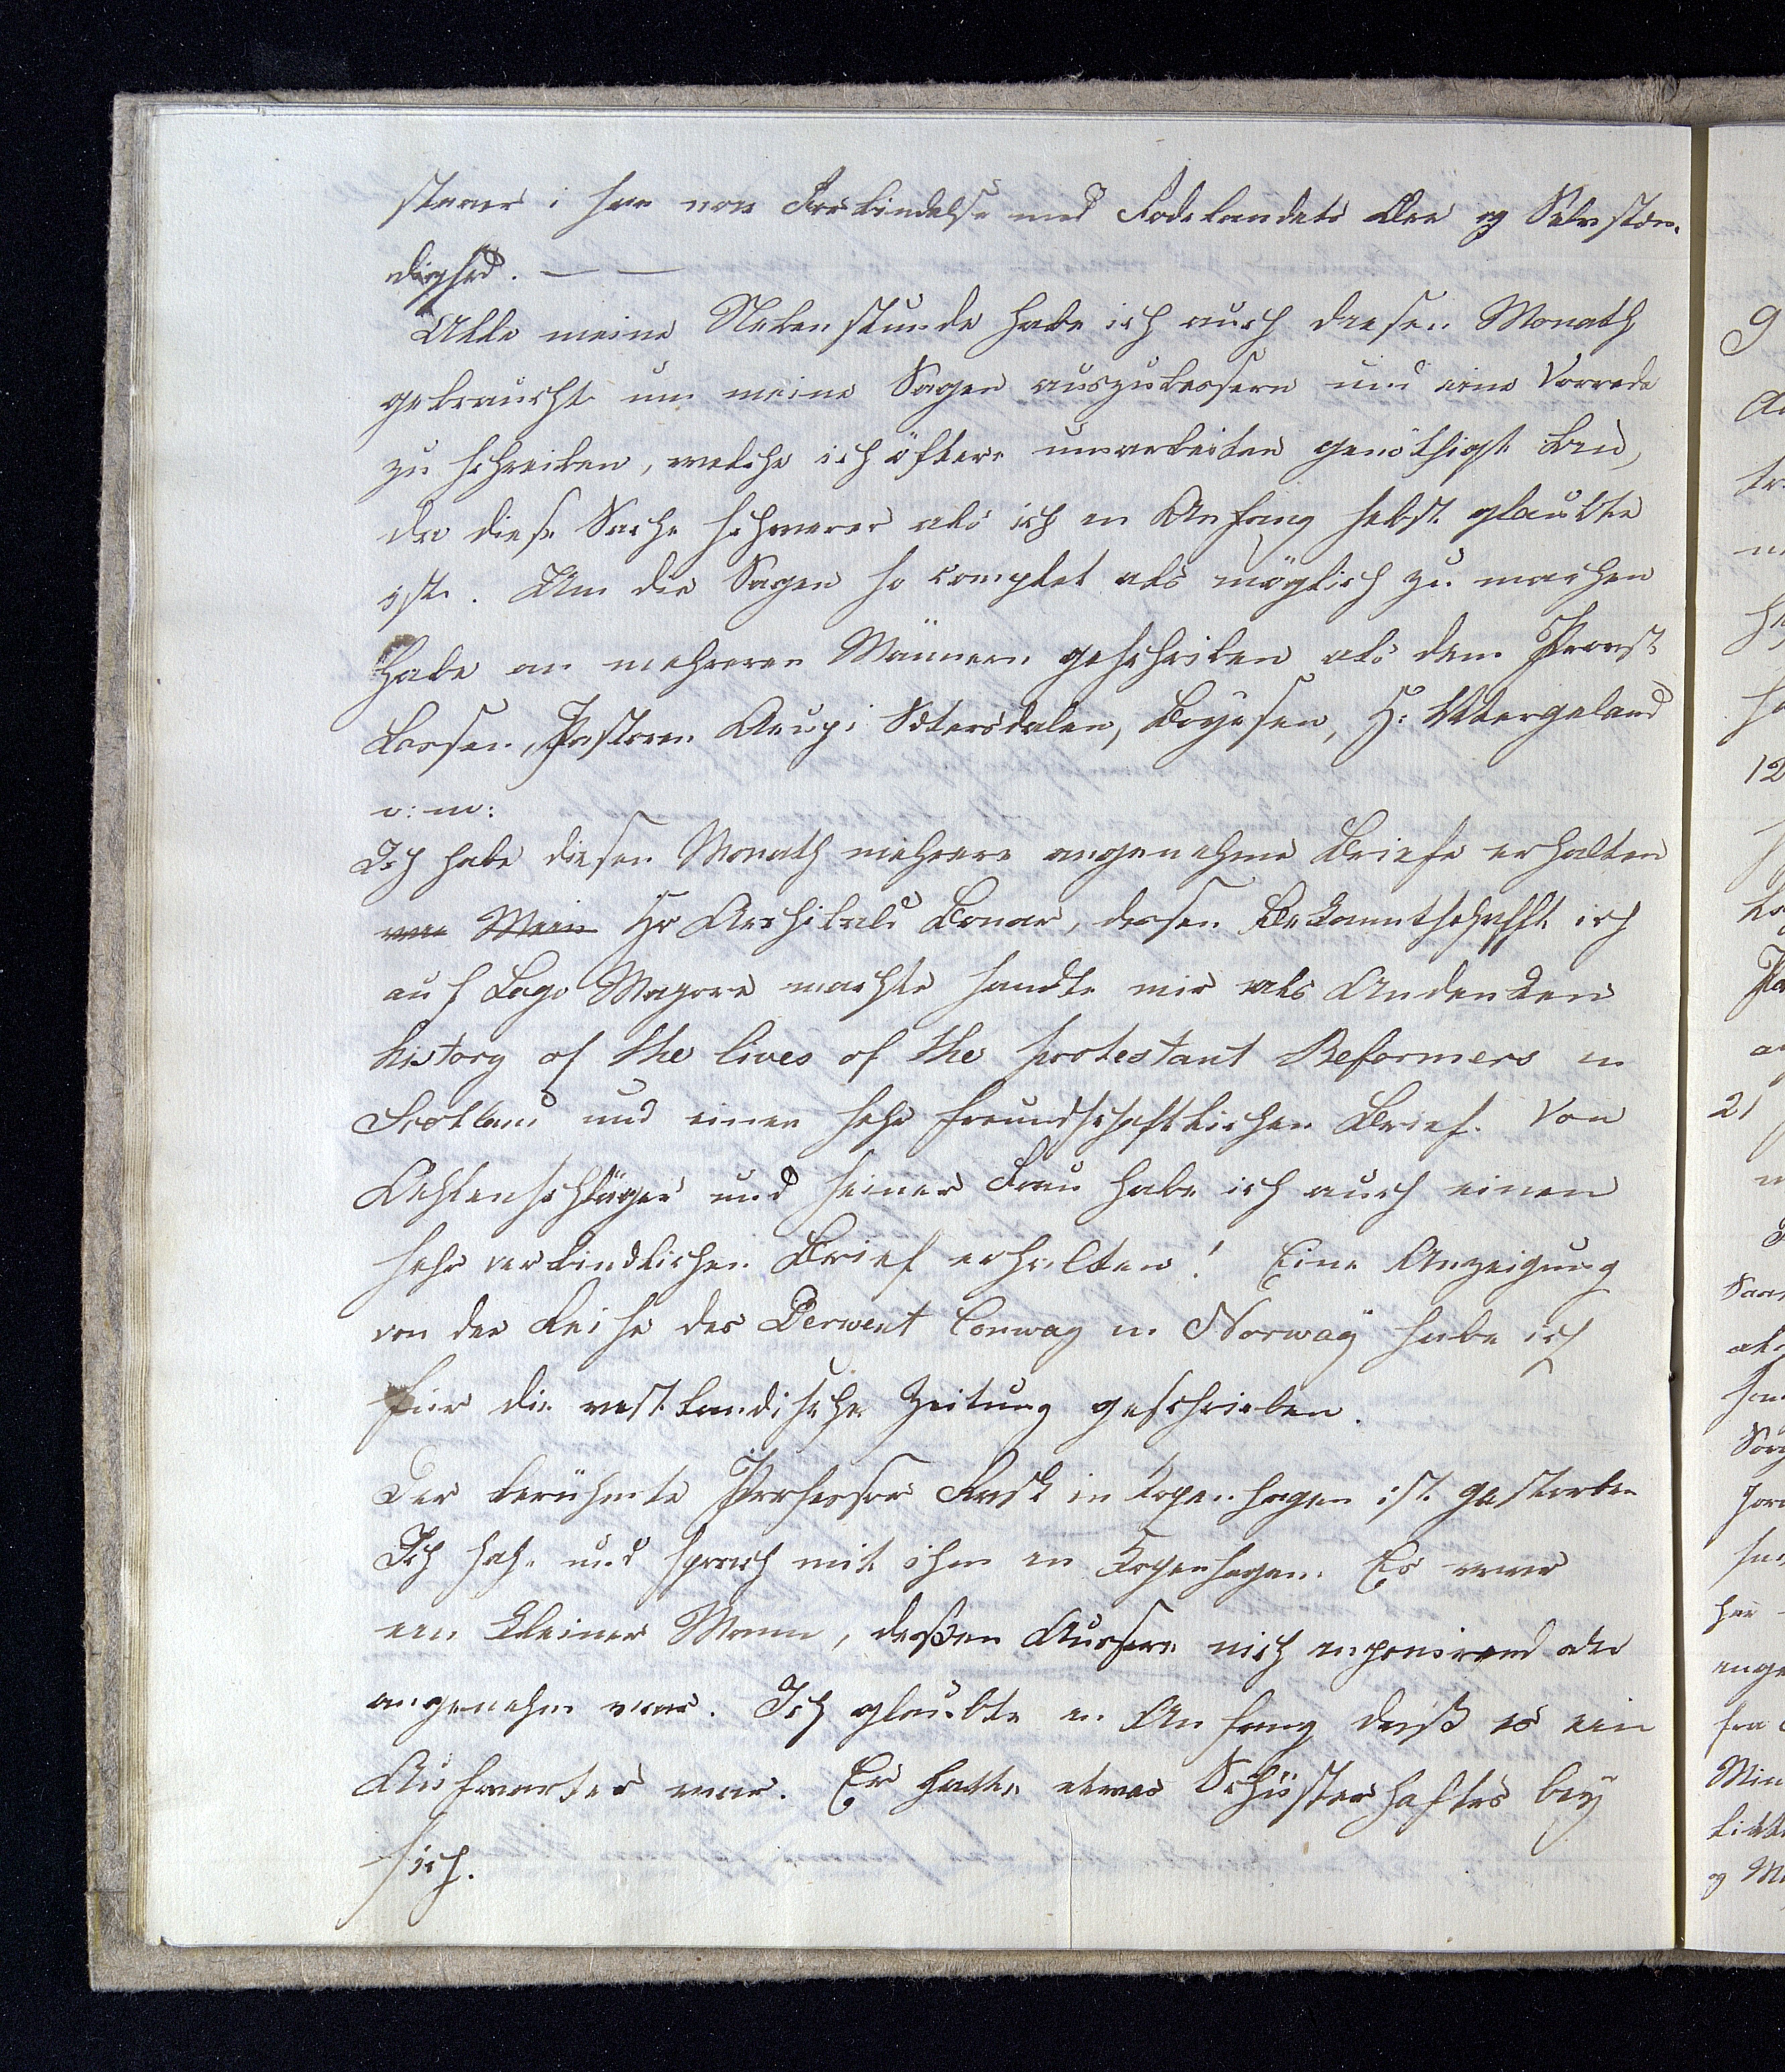 staaer i saa noie Forbindelse med Fødelandets Ære og Selvstæn-
dighed. — —
Alle meine Nebenstunde habe ich auch diesen Monath
gebraucht um meine Sagen auszubessern und eine Vorrede
zu schreiben, welche ich öfters umarbeiten genöthigt bin,
da diese Sache schwerer als ich in Anfang selbst glaubte
ist. Um die Sagen so complet als möglich zu machen
habe an mehreren Männern geschrieben als dem Provst
Lassen, Pastoren Aarup i Sætersdalen, Boyesen, H: Wergeland
o: m:
Ich habe diesen Monath mehrere angenehme Briefe erhalten
von Mein Hr Archibald Bonar, dessen Bekanntschafft ich
auf Lago Magore machte sandte mir als Andenken
history of the lives of the protestant Reformers in
Scotland und einen sehr freundschaftlichen Brief. Von
Oehlenschläger und seiner Frau habe ich auch einen
sehr verbindlichen Brief erhalten! Eine Anzeigung
von der Reise des Derwent Conway in Norway habe ich
für die vestlandische Zeitung geschrieben.
Der berühmte Professor Rask in Kopenhagen ist gestorben
Ich sah und sprach mit ihm in Kopenhagen. Es war
ein kleiner Mann, deßen Aussere nich imponirend oder
angenehm war. Ich glaubte in Anfang daß es ein
Aufwarter war. Er hatte etwas Schüsterhaftes bey
sich.